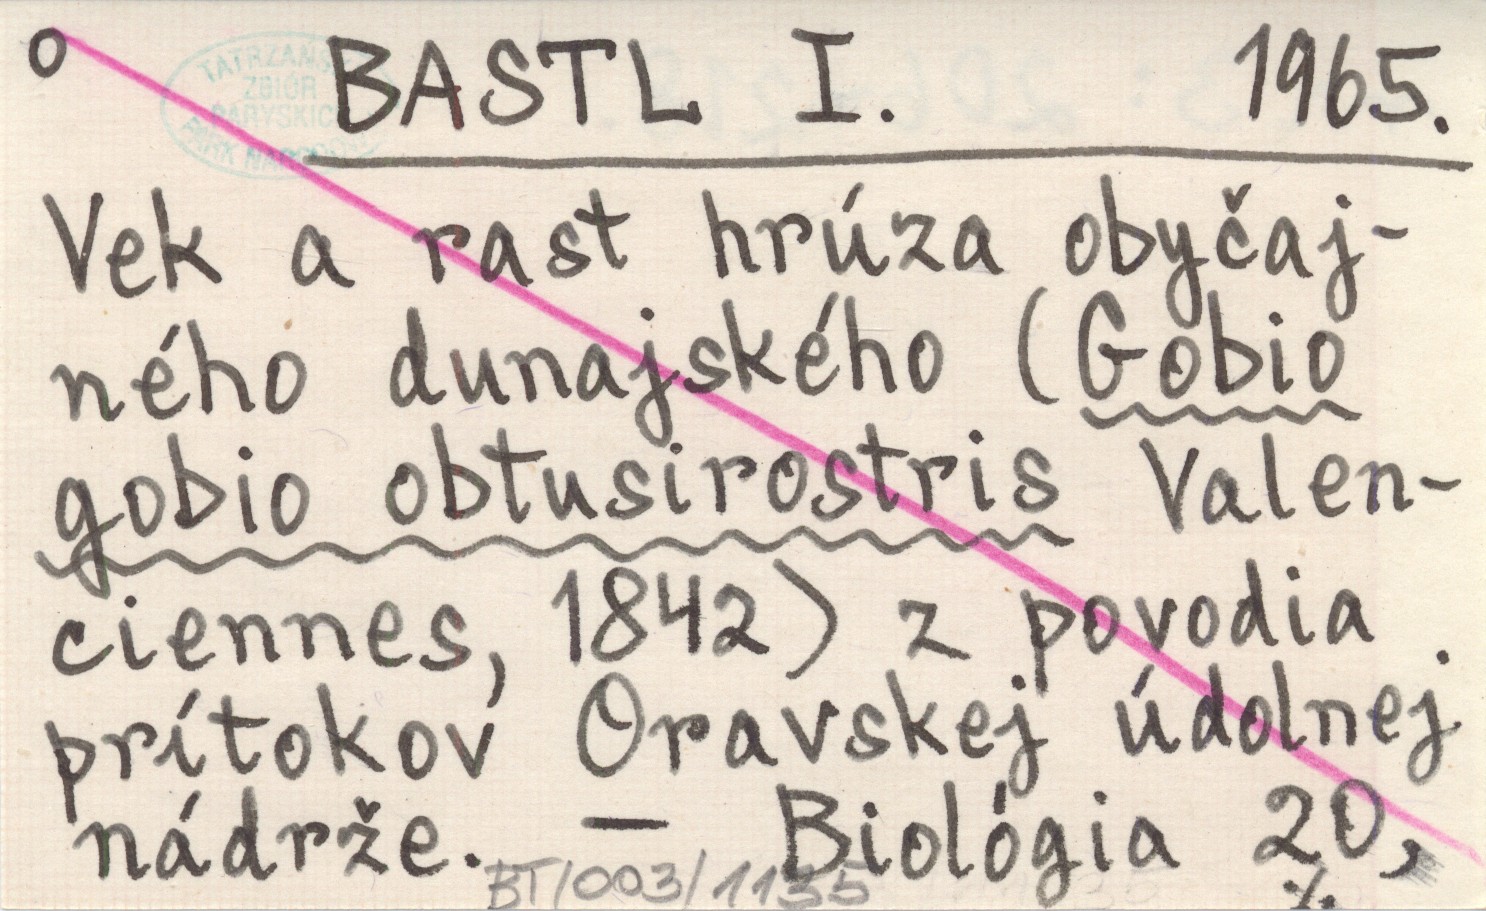 o BASTL I. 1965.
TATRZAŃSKI
ZBIÓR
PARYSKICH
PARK NARODOWY
Vek a rast hrúza obyčaj-
ného dunajského (Gobio
gobio obtusirostris Valen-
ciennes, 1842) z povodia
prítokov Oravskej údolnej
nádrže. — Biológia 20,
BT/003/1135